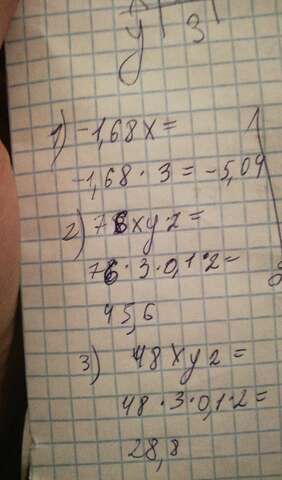 y 3
1) -1,68x=
-1,68·3=-5,04
2) 76xy2=
76·3·0,1·2=
45,6
3) 48xy2=
48·3·0,1·2=
28,8